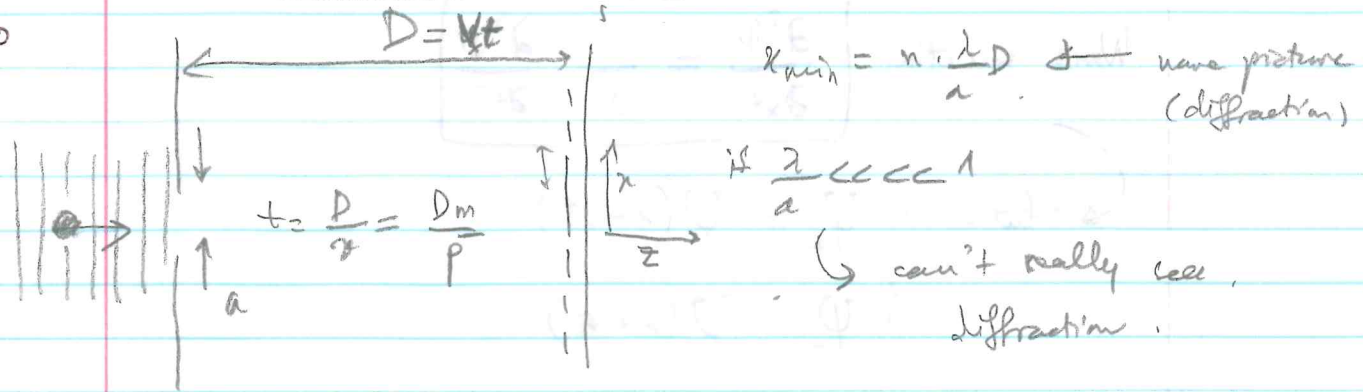 D = Vt
x_min = n · λ/a D ← wave picture
(diffraction)
if λ/a <<<< 1
x
t = D/v = Dm/p
z
a
↳ can't really see
diffraction.